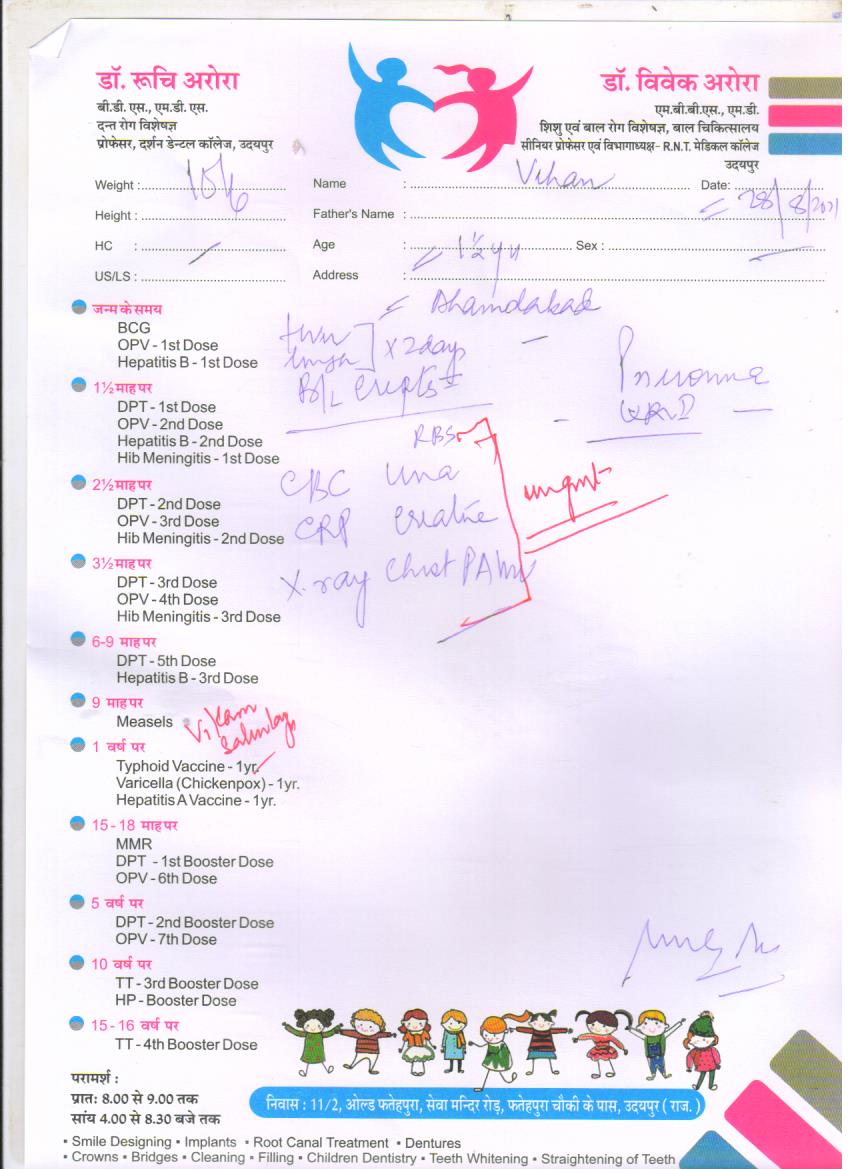 डॉ. रूचि अरोरा
बी.डी.एस., एम.डी.एस.
दन्त रोग विशेषज्ञ
प्रोफेसर, दर्शन डेन्टल कॉलेज, उदयपुर
डॉ. विवेक अरोरा
एम.बी.बी.एस., एम.डी.
शिशु एवं बाल रोग विशेषज्ञ, बाल चिकित्सालय
सीनियर प्रोफेसर एवं विभागाध्यक्ष- R.N.T. मेडिकल कॉलेज
उदयपुर
Weight : Name : Vihan Date: 28/8/2021
Height : Father's Name :
HC : Age : 1½ yr Sex :
US/LS : Address :
जन्म के समय
BCG
OPV - 1st Dose
Hepatitis B - 1st Dose
x 2 days
B/L
1½ माह पर
DPT - 1st Dose
OPV - 2nd Dose
Hepatitis B - 2nd Dose
Hib Meningitis - 1st Dose
RBS
2½ माह पर
DPT - 2nd Dose
OPV - 3rd Dose
Hib Meningitis - 2nd Dose
CBC
CRP
urgent
3½ माह पर
DPT - 3rd Dose
OPV - 4th Dose
Hib Meningitis - 3rd Dose
X-ray Chest PA
6-9 माह पर
DPT - 5th Dose
Hepatitis B - 3rd Dose
9 माह पर
Measels
1 वर्ष पर
Typhoid Vaccine - 1yr.
Varicella (Chickenpox) - 1yr.
Hepatitis A Vaccine - 1yr.
15 - 18 माह पर
MMR
DPT - 1st Booster Dose
OPV - 6th Dose
5 वर्ष पर
DPT - 2nd Booster Dose
OPV - 7th Dose
10 वर्ष पर
TT - 3rd Booster Dose
HP - Booster Dose
15 - 16 वर्ष पर
TT - 4th Booster Dose
परामर्श :
प्रात: 8.00 से 9.00 तक
सांय 4.00 से 8.30 बजे तक
निवास : 11/2, ओल्ड फतेहपुरा, सेवा मन्दिर रोड़, फतेहपुरा चौकी के पास, उदयपुर ( राज. )
▪ Smile Designing ▪ Implants ▪ Root Canal Treatment ▪ Dentures
▪ Crowns ▪ Bridges ▪ Cleaning ▪ Filling ▪ Children Dentistry ▪ Teeth Whitening ▪ Straightening of Teeth